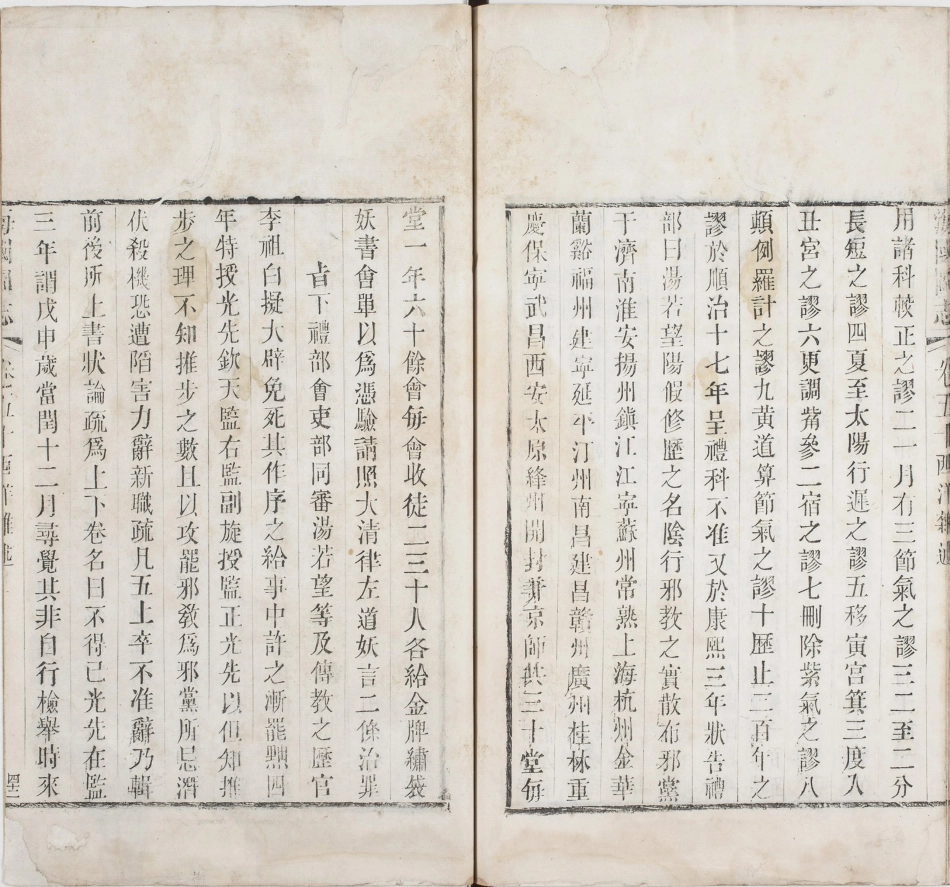 用諸科較正之謬二一月有三節氣之謬三二至二分
長短之謬四夏至太陽行遲之謬五移寅宮箕三度入
丑宮之謬六更調觜參二宿之謬七刪除紫氣之謬八
顛倒羅計之謬九黃道算節氣之謬十歷止二百年之
謬於順治十七年呈禮科不准又於康熙三年狀告禮
部曰湯若望陽假修歷之名陰行邪教之實散布邪黨
于濟南淮安揚州鎮江江寧蘇州常熟上海杭州金華
蘭谿福州建寧延平汀州南昌建昌贛州廣州桂林重
慶保寧武昌西安太原絳州開封兼京師共三十堂每
堂一年六十餘會每會收徒二三十人各給金牌繡袋
妖書會單以爲憑驗請照大清律左道妖言二條治罪
旨下禮部會吏部同審湯若望等及傳教之歷官
李祖白擬大辟免死其作序之給事中許之漸罷黜四
年特授光先欽天監右監副旋授監正光先以但知推
步之理不知推步之數且以攻罷邪教爲邪黨所忌潛
伏殺機恐遭陷害力辭新職疏凡五上卒不准辭乃輯
前後所上書狀論疏爲上下卷名曰不得已光先在監
三年謂戊申歲當閏十二月尋覺其非自行檢舉時來
海國圖志